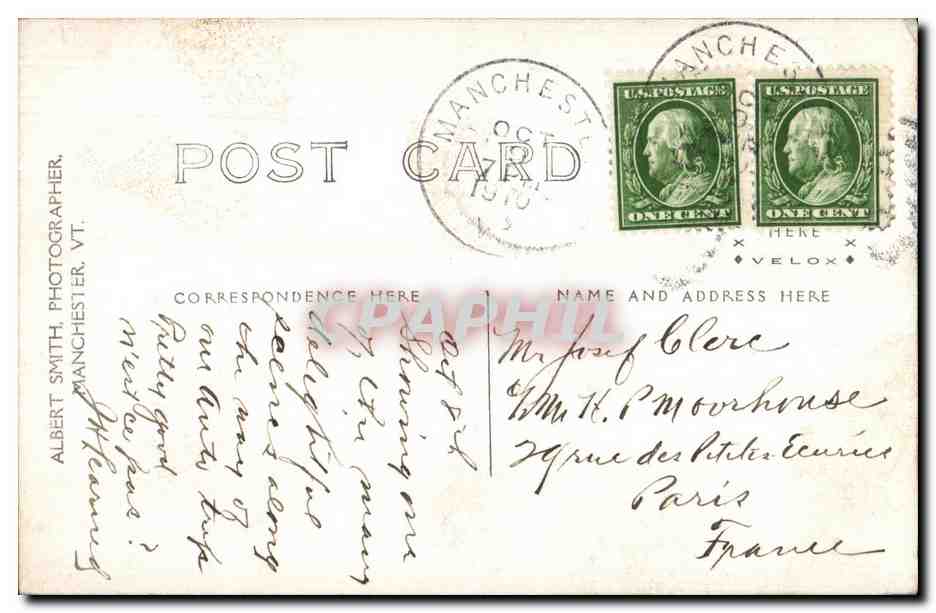 MANCHEST
OCT
7
1910
MANCHES
U.S. POSTAGE
ONE CENT
U.S. POSTAGE
ONE CENT
HERE
VELOX
POST CARD
ALBERT SMITH, PHOTOGRAPHER,
MANCHESTER, VT.
CORRESPONDENCE HERE
NAME AND ADDRESS HERE
CPAPHIL
Oct 8
Showing one
of the many
delightful
scenes along
the way of
our Auto trip
Pretty good
n'est ce pas?
Mr Josef Clerc
c/o Mr K. P Moorhouse
29 rue des Petites Ecuries
Paris
France